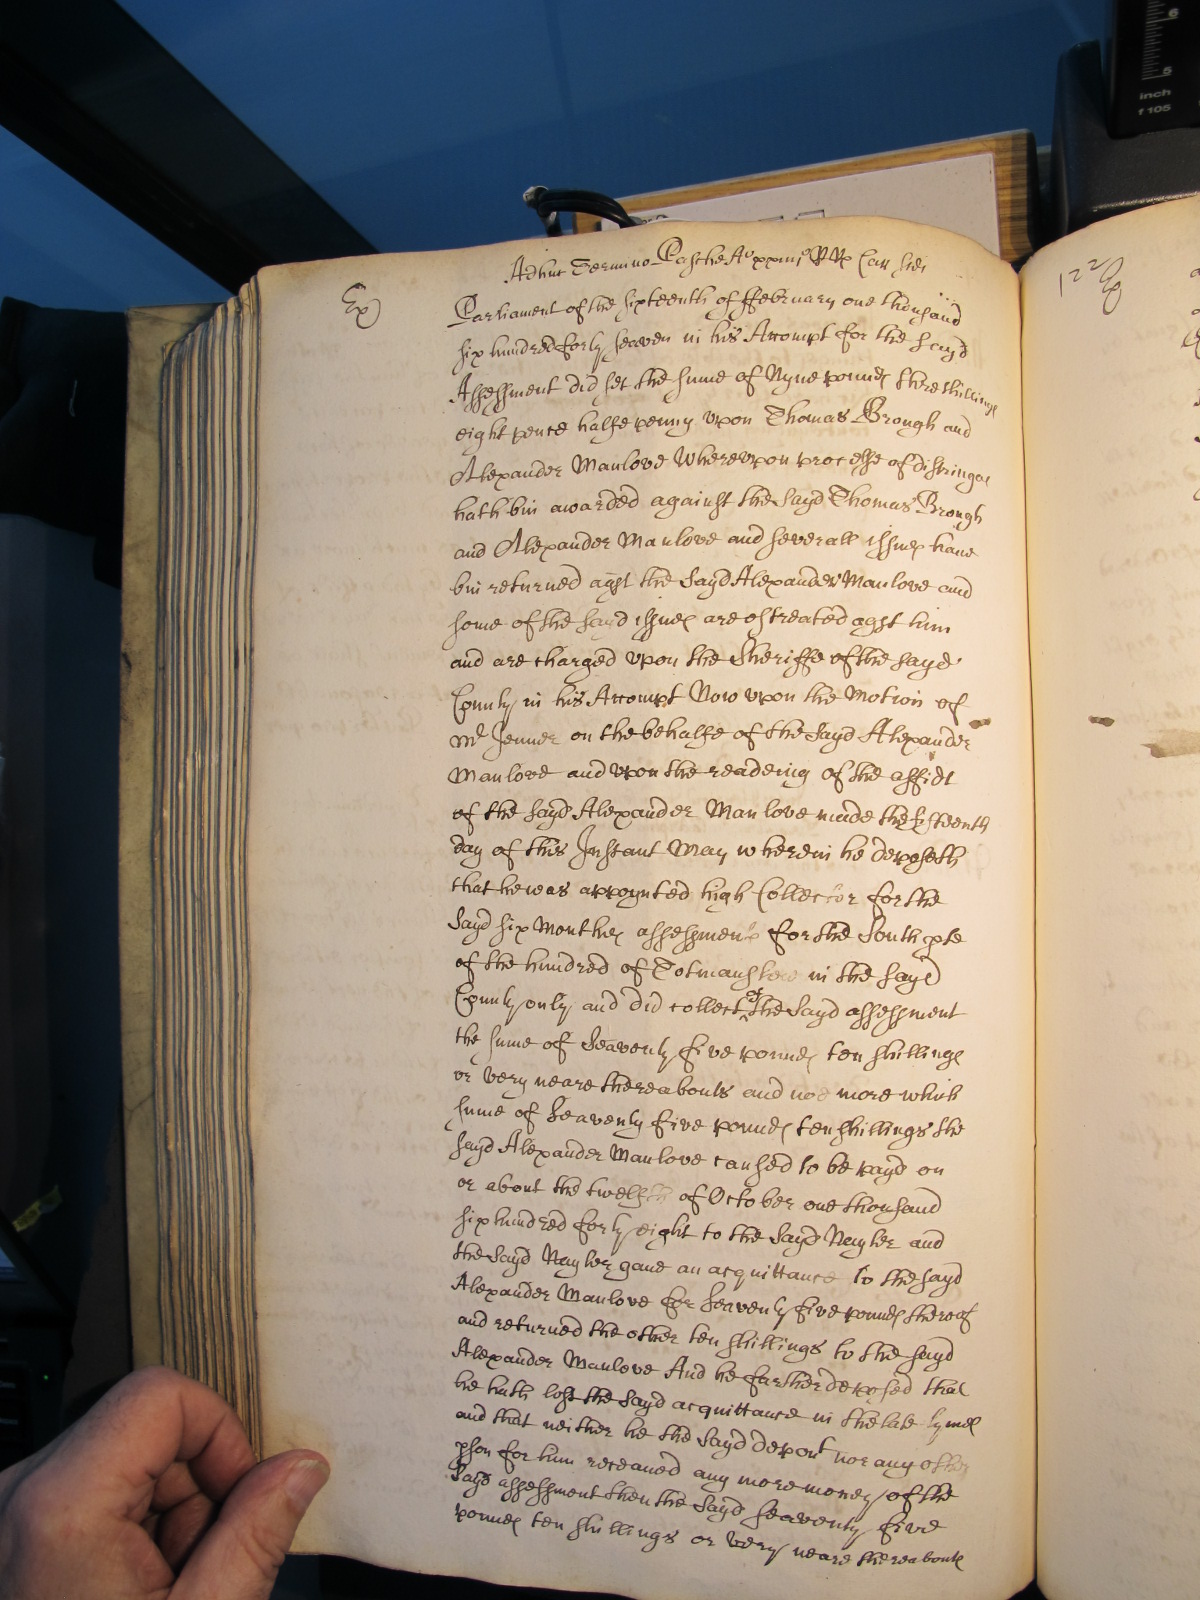 Adhuc Termino Pasche Ao xxiiijo RRs Car scdi
Ex
Parliament of the sixteenth of ffebruary one thousand
six hundred forty seaven in his Accompt for the sayd
Assessment did set the sume of Nyne pounds three shillings
eight pence halfe penny upon Thomas Brough and
Alexander Manlove Whereupon processe of distringas
hath bin awarded against the Sayd Thomas Brough
and Alexander Manlove and severall issues have
bin returned agst the Sayd Alexander Manlove and
some of the sayd issues are estreated agst him
and are charged upon the Sheriffe of the sayd
County in his Accompt Now upon the Motion of
Mr Jenner on the behalfe of the Sayd Alexander
Manlove and upon the readeing of the affidt
of the sayd Alexander Manlove made the
day of this Instant May wherein he deposeth
that he was appoynted high Collector for the
Sayd six Monthes assessment for the South pte
of the hundred of Totmanslow in the sayd
County only and did collect of the Sayd assessment
the sume of Seaventy five pounds ten shillings
or very neare thereabouts and noe more which
sume of Seaventy five pounds ten shillings the
sayd Alexander Manlove caused to be payd on
or about the twelfth of October one thousand
six hundred forty eight to the Sayd Nayler and
the Sayd Nayler gave an acquittance to the sayd
Alexander Manlove for Seaventy five pounds thereof
and returned the other ten shillings to the sayd
Alexander Manlove And he farther deposed that
he hath lost the Sayd acquittance in the late tymes
and that neither he the Sayd depont nor any other
pson for him receaved any more money of the
Sayd assessment then the Sayd Seaventy five
pounds ten shillings or very neare thereabouts
122
Ex
inch
f 105
5
6